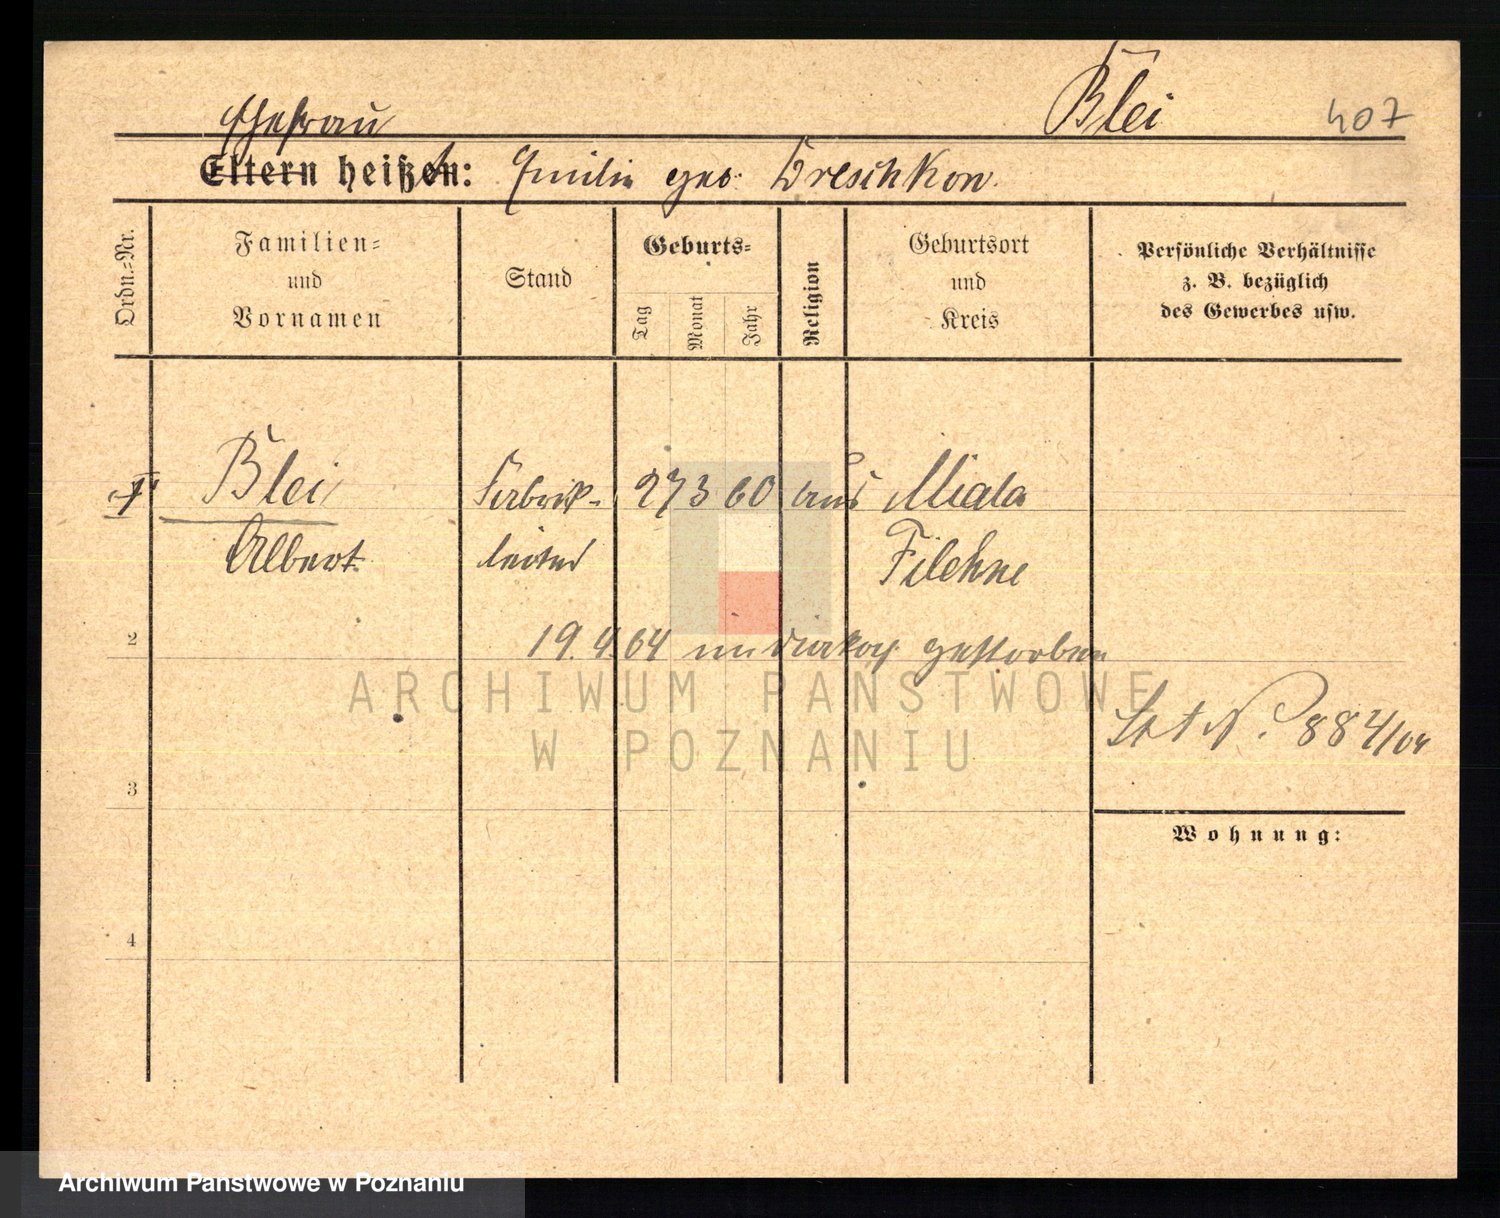 Blei
407
Ehefrau
Eltern heißen: Emilie geb. Dreschkow.
Ordn.-Nr.
Familien-
und
Vornamen
Stand
Geburts-
Tag
Monat
Jahr
Religion
Geburtsort
und
Kreis
Persönliche Verhältnisse
z. B. bezüglich
des Gewerbes usw.
Blei Fabrik- 27 3 60 aus Miala
Albert leiter Filehne
2
19.4.04 im gestorben
No. 884/04
3
Wohnung:
4
ARCHIWUM PAŃSTWOWE
W POZNANIU
Archiwum Państwowe w Poznaniu